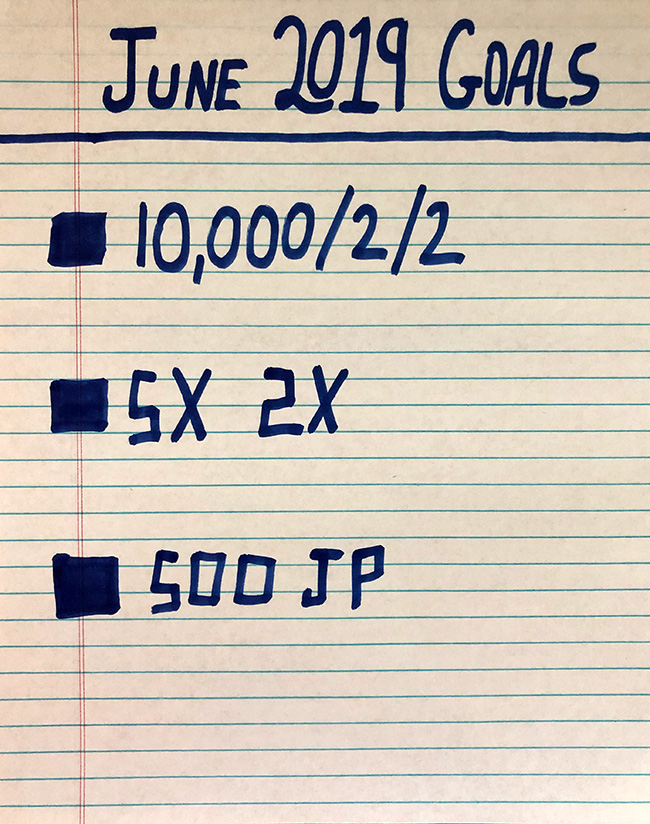 June 2019 Goals
10,000/2/2
5X 2X
500 JP